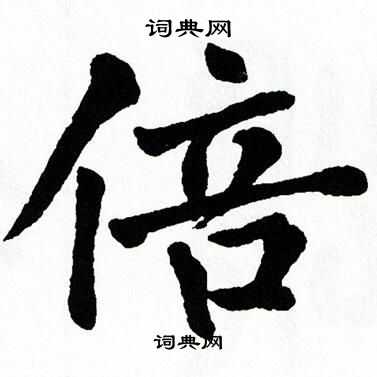 词典网
倍
词典网